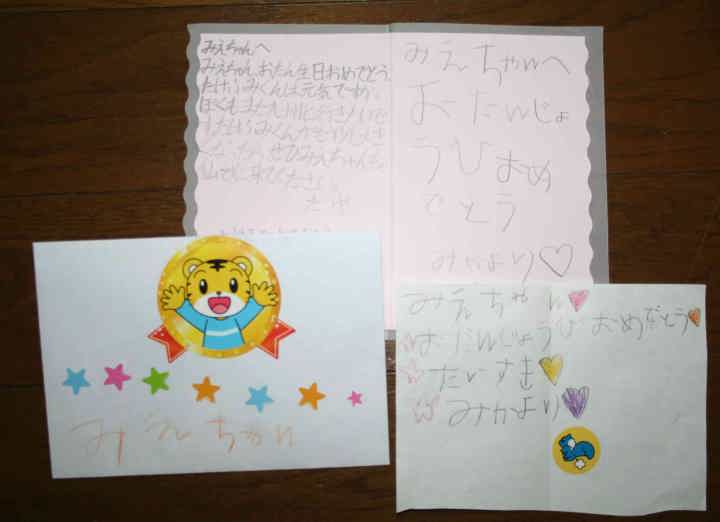 みえちゃんへ
みえちゃん、おたん生日おめでとう。
たけふみくんは元気ですか。
ぼくもまた九州に行きたいで
す。たけふみくんが
ぜひみえちゃんも
仙台に来てください。
みえちゃんへ
おたんじょ
うびおめ
でとう
みかより♡
みえちゃん
みえちゃん
おたんじょうびおめだとう
だいすき
みかより